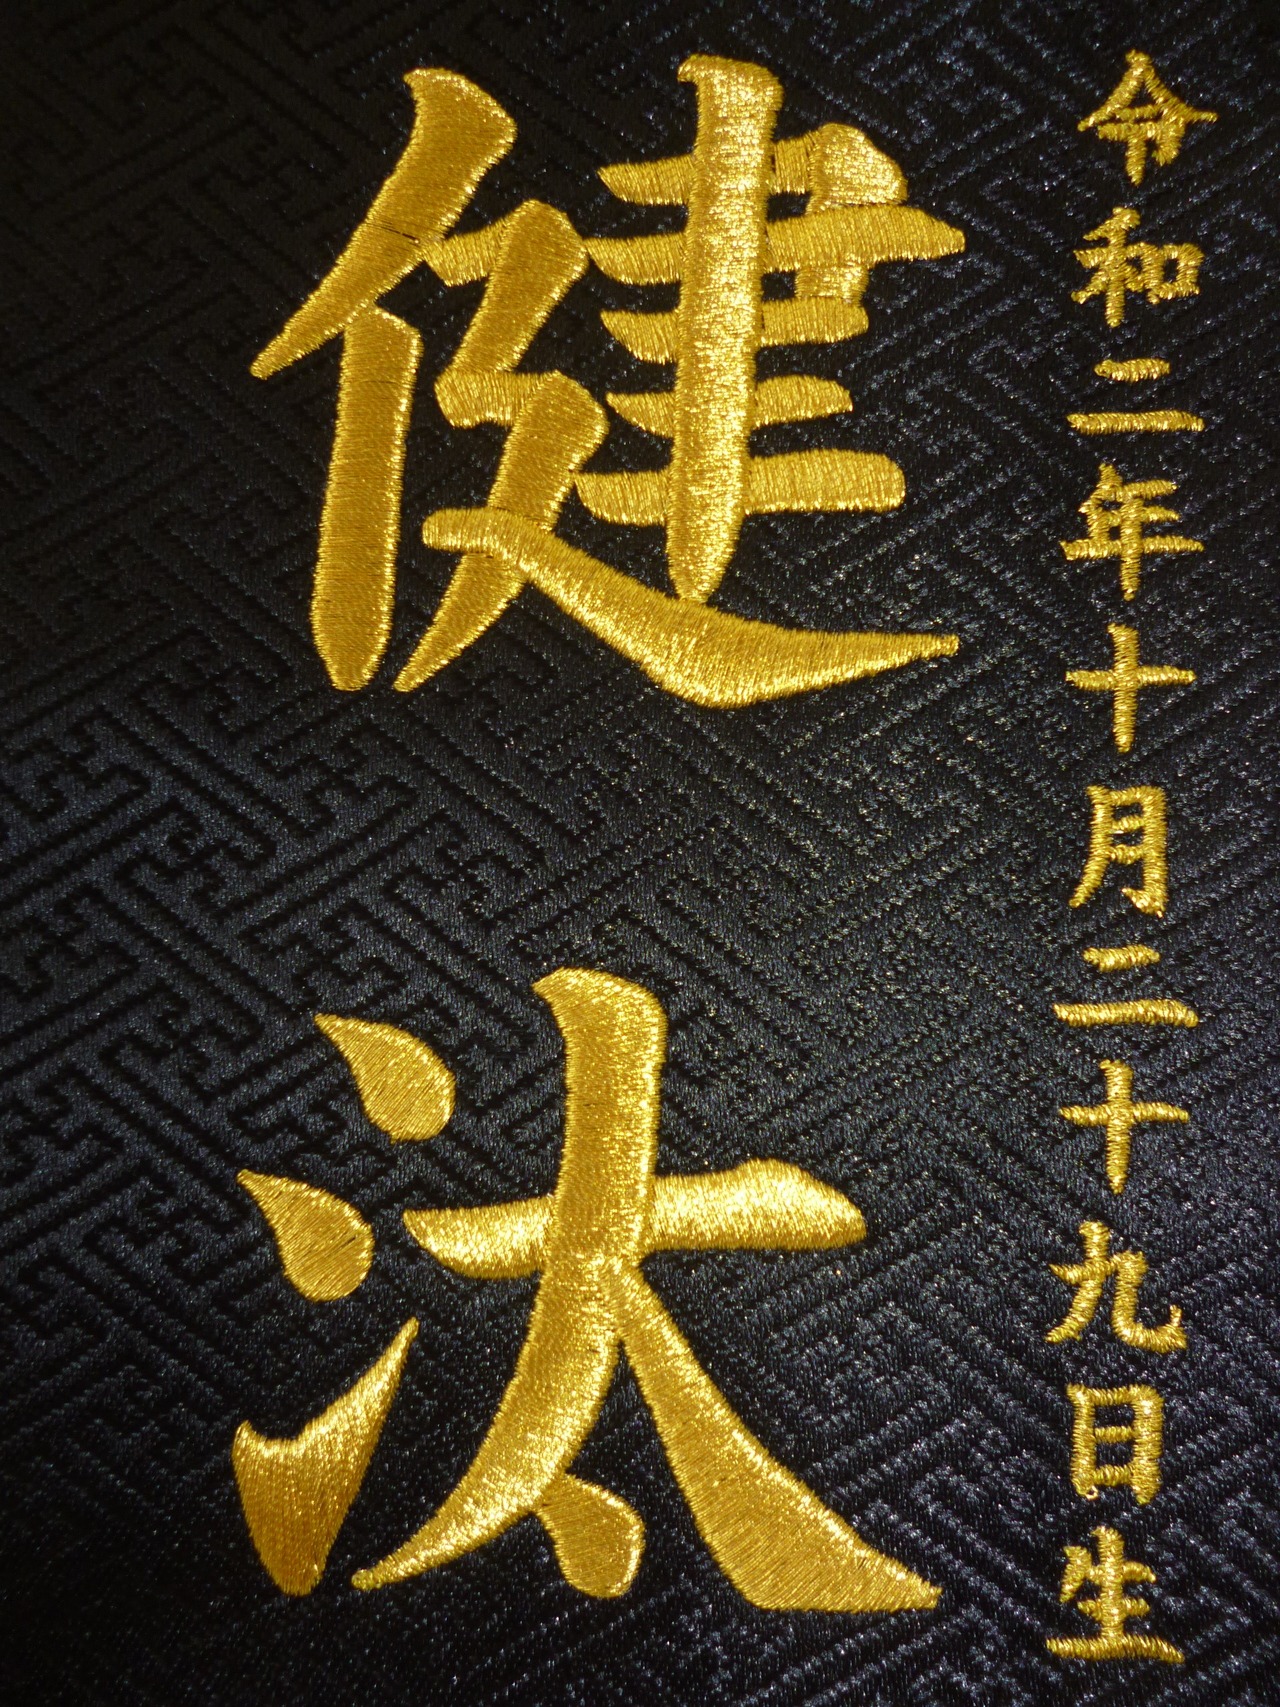 令和二年十月二十九日生
健汰